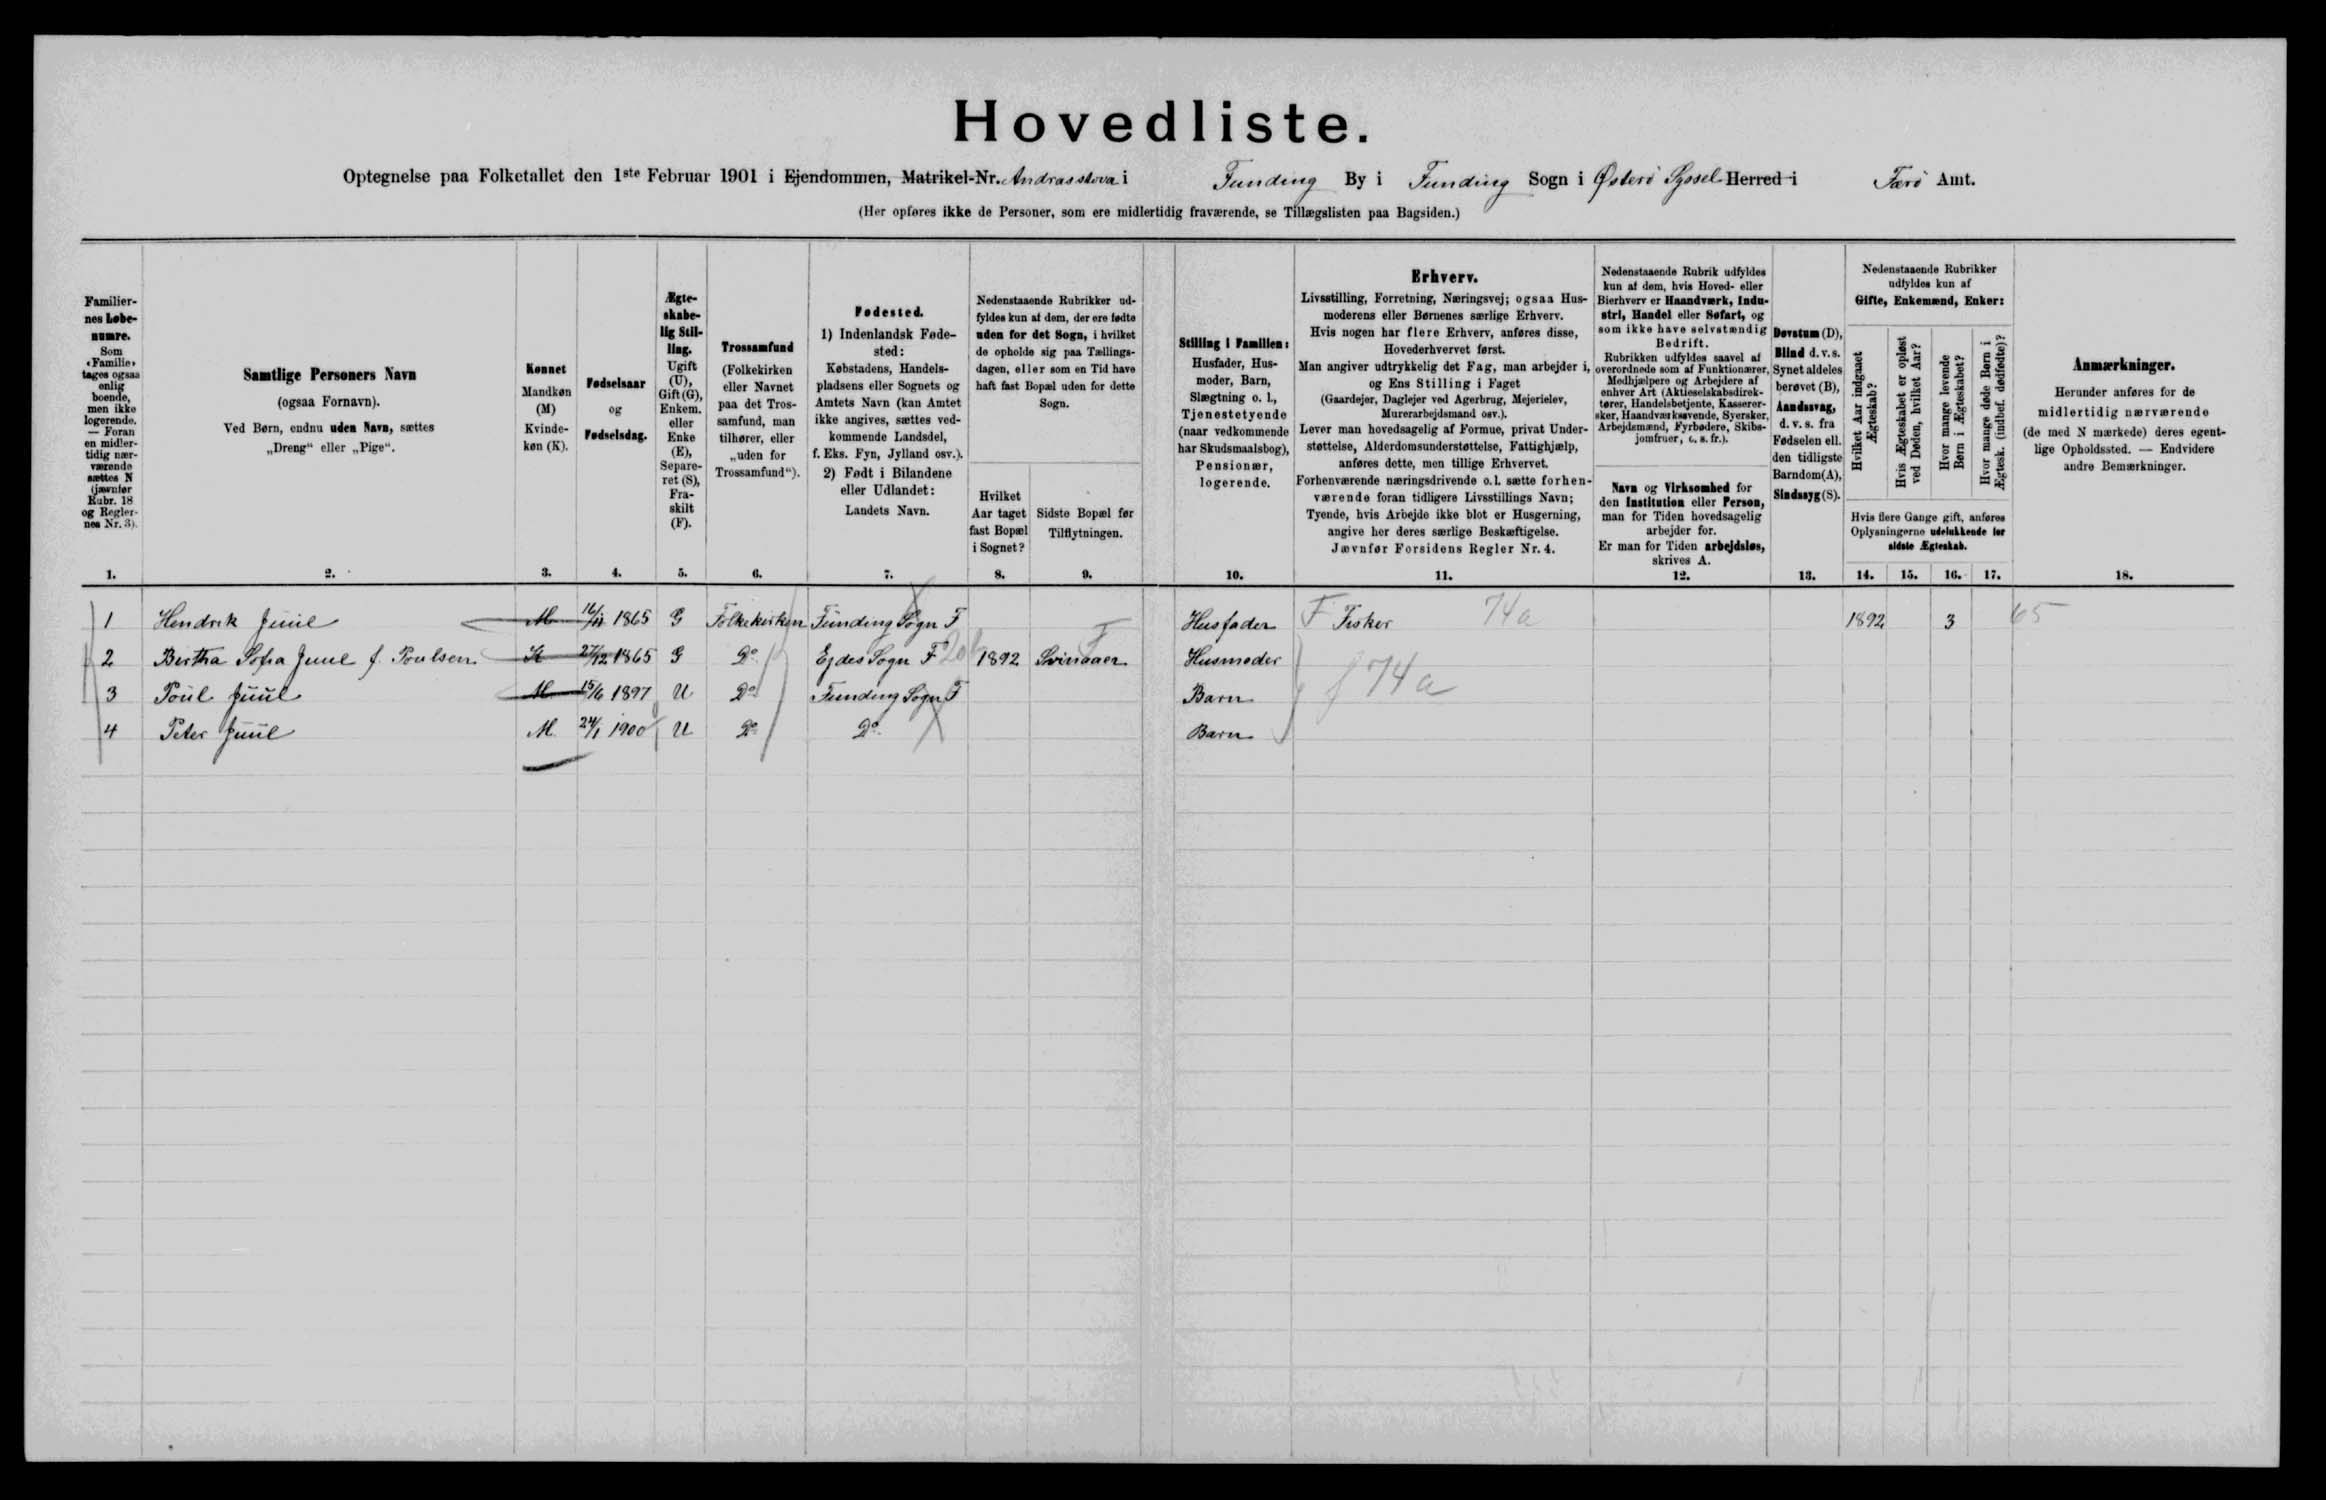 Hovedliste.
Optegnelse paa Folketallet den 1ste Februar 1901 i Ejendommen, Matrikel-Nr. Andrasstova i Funding By i Funding Sogn i Østerö Syssel Herred i Færö Amt.
(Her opføres ikke de Personer, som ere midlertidig fraværende, se Tillægslisten paa Bagsiden.)
Familiernes Løbenumre.
Som «Familie» tages ogsaa enlig boende, men ikke logerende. — Foran en midlertidig nærværende sættes N (jævnfør Rubr. 18 og Reglernes Nr. 3).
1.
Samtlige Personers Navn
(ogsaa Fornavn).
Ved Børn, endnu uden Navn, sættes
„Dreng" eller „Pige".
2.
Kønnet
Mandkøn
(M)
Kvinde-
køn (K).
3.
Fødselsaar
og
Fødselsdag.
4.
Ægte-
skabe-
lig Stil-
ling.
Ugift
(U),
Gift (G),
Enkem.
eller
Enke
(E),
Separe-
ret (S),
Fra-
skilt
(F).
5.
Trossamfund
(Folkekirken
eller Navnet
paa det Tros-
samfund, man
tilhører, eller
„uden for
Trossamfund").
6.
Fødested.
1) Indenlandsk Føde-
sted:
Købstadens, Handels-
pladsens eller Sognets og
Amtets Navn (kan Amtet
ikke angives, sættes ved-
kommende Landsdel,
f. Eks. Fyn, Jylland osv.).
2) Født i Bilandene
eller Udlandet:
Landets Navn.
7.
Nedenstaaende Rubrikker ud-
fyldes kun af dem, der ere fødte
uden for det Sogn, i hvilket
de opholde sig paa Tællings-
dagen, eller som en Tid have
haft fast Bopæl uden for dette
Sogn.
Hvilket
Aar taget
fast Bopæl
i Sognet?
8.
Sidste Bopæl før
Tilflytningen.
9.
Stilling i Familien:
Husfader, Hus-
moder, Barn,
Slægtning o. l.,
Tjenestetyende
(naar vedkommende
har Skudsmaalsbog),
Pensionær,
logerende.
10.
Erhverv.
Livsstilling, Forretning, Næringsvej; ogsaa Hus-
moderens eller Børnenes særlige Erhverv.
Hvis nogen har flere Erhverv, anføres disse,
Hovederhvervet først.
Man angiver udtrykkelig det Fag, man arbejder i,
og Ens Stilling i Faget
(Gaardejer, Daglejer ved Agerbrug, Mejerielev,
Murerarbejdsmand osv.).
Lever man hovedsagelig af Formue, privat Under-
støttelse, Alderdomsunderstøttelse, Fattighjælp,
anføres dette, men tillige Erhvervet.
Forhenværende næringsdrivende o. l. sætte forhen-
værende foran tidligere Livsstillings Navn;
Tyende, hvis Arbejde ikke blot er Husgerning,
angive her deres særlige Beskæftigelse.
Jævnfør Forsidens Regler Nr. 4.
11.
Nedenstaaende Rubrik udfyldes
kun af dem, hvis Hoved- eller
Bierhverv er Haandværk, Indu-
stri, Handel eller Søfart, og
som ikke have selvstændig
Bedrift.
Rubrikken udfyldes saavel af
overordnede som af Funktionærer,
Medhjælpere og Arbejdere af
enhver Art (Aktieselskabsdirek-
tører, Handelsbetjente, Kasserer-
sker, Haandværkssvende, Syersker,
Arbejdsmænd, Fyrbødere, Skibs-
jomfruer, o. s. fr.).
Navn og Virksomhed for
den Institution eller Person,
man for Tiden hovedsagelig
arbejder for.
Er man for Tiden arbejdsløs,
skrives A.
12.
Døvstum (D),
Blind d. v. s.
Synet aldeles
berøvet (B),
Aandssvag,
d. v. s. fra
Fødselen ell.
den tidligste
Barndom (A),
Sindssyg (S).
13.
Nedenstaaende Rubrikker
udfyldes kun af
Gifte, Enkemænd, Enker:
Hvilket Aar indgaaet Ægteskab?
Hvis Ægteskabet er opløst ved Døden, hvilket Aar?
Hvor mange levende Børn i Ægteskabet?
Hvor mange døde Børn i Ægtesk. (indbef. dødfødte)?
Hvis flere Gange gift, anføres
Oplysningerne udelukkende for
sidste Ægteskab.
14. 15. 16. 17.
Anmærkninger.
Herunder anføres for de
midlertidig nærværende
(de med N mærkede) deres egent-
lige Opholdssted. — Endvidere
andre Bemærkninger.
18.
1 Hendrik Juul M 16/11 1865 G Folkekirken Funding Sogn F Husfader F Fisker 74a 1892 3 65
2 Birtha Sofia Juul f. Poulsen K 27/12 1865 G Do Ejdes Sogn F 1892 Svinaaer F Husmoder
3 Poul Juul M 15/6 1897 U Do Funding Sogn F Barn f 74a
4 Peter Juul M 24/1 1900 U Do Do Barn